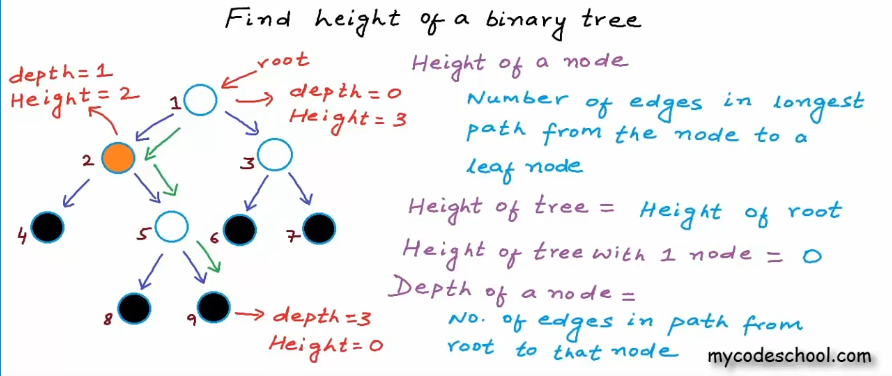 Find height of a binary tree
depth = 1
Height = 2
root
1
depth = 0
Height = 3
2
3
4
5
6
7
8
9
depth = 3
Height = 0
Height of a node
Number of edges in longest
path from the node to a
leaf node
Height of tree = Height of root
Height of tree with 1 node = 0
Depth of a node =
No. of edges in path from
root to that node
mycodeschool.com